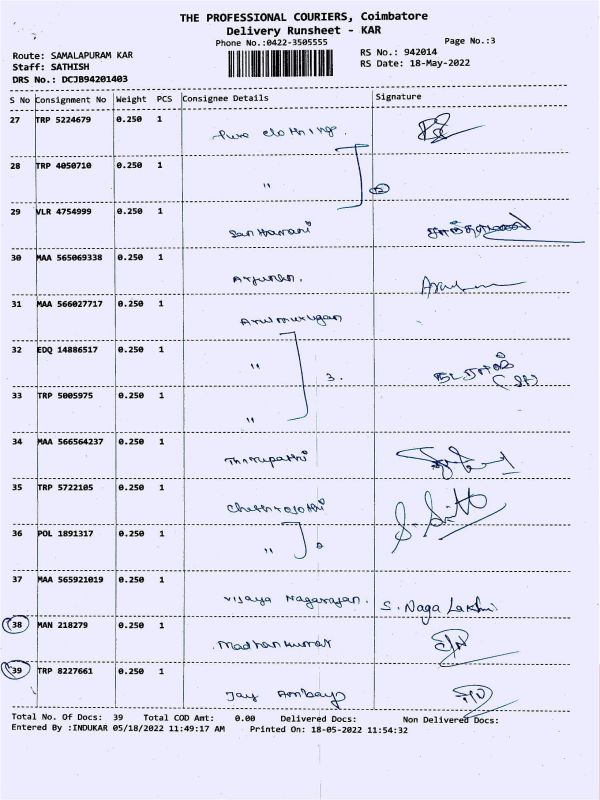 THE PROFESSIONAL COURIERS, Coimbatore
Delivery Runsheet - KAR
Phone No.:0422-3505555 Page No.:3
Route: SAMALAPURAM KAR RS No.: 942014
Staff: SATHISH RS Date: 18-May-2022
DRS No.: DCJB94201403
S No Consignment No Weight PCS Consignee Details Signature
27 TRP 5224679 0.250 1
Pure clothings.
28 TRP 4050710 0.250 1
"
29 VLR 4754999 0.250 1
30 MAA 565069338 0.250 1
31 MAA 566027717 0.250 1
Arulmurugan
32 EDQ 14886517 0.250 1
" 3.
33 TRP 5005975 0.250 1
"
34 MAA 566564237 0.250 1
Thirupathi
35 TRP 5722105 0.250 1
36 POL 1891317 0.250 1
"
37 MAA 565921019 0.250 1
Vijaya Nagarajan. S. Naga Lakshmi
38 MAN 218279 0.250 1
Madhankumar
39 TRP 8227661 0.250 1
Jay Ambay
Total No. Of Docs: 39 Total COD Amt: 0.00 Delivered Docs: Non Delivered Docs:
Entered By :INDUKAR 05/18/2022 11:49:17 AM Printed On: 18-05-2022 11:54:32